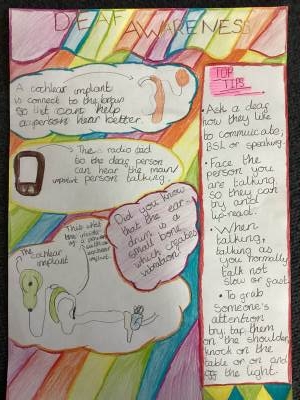 DEAF AWARENESS
A cochlear implant
is connect to the brain
so it can help
a person hear better.
The radio aid
so the deaf person
can hear the main/
important person talking.
Did you know
that the ear
drum is a
small bone
which creates
vibration
This what
the inside
of a person
cochlear
implant
The
cochlear
implant
TOP
TIPS
• Ask a deaf
how they like
to commuicate;
BSL or speaking.
• Face the
person you
are talking,
so they can
try and
lipread.
• When
talking,
talking as
you normally
talk not
slow or fast.
• To grab
someone's
attention
try, tap them
on the shoulder,
knock on the
table or on and
off the light.